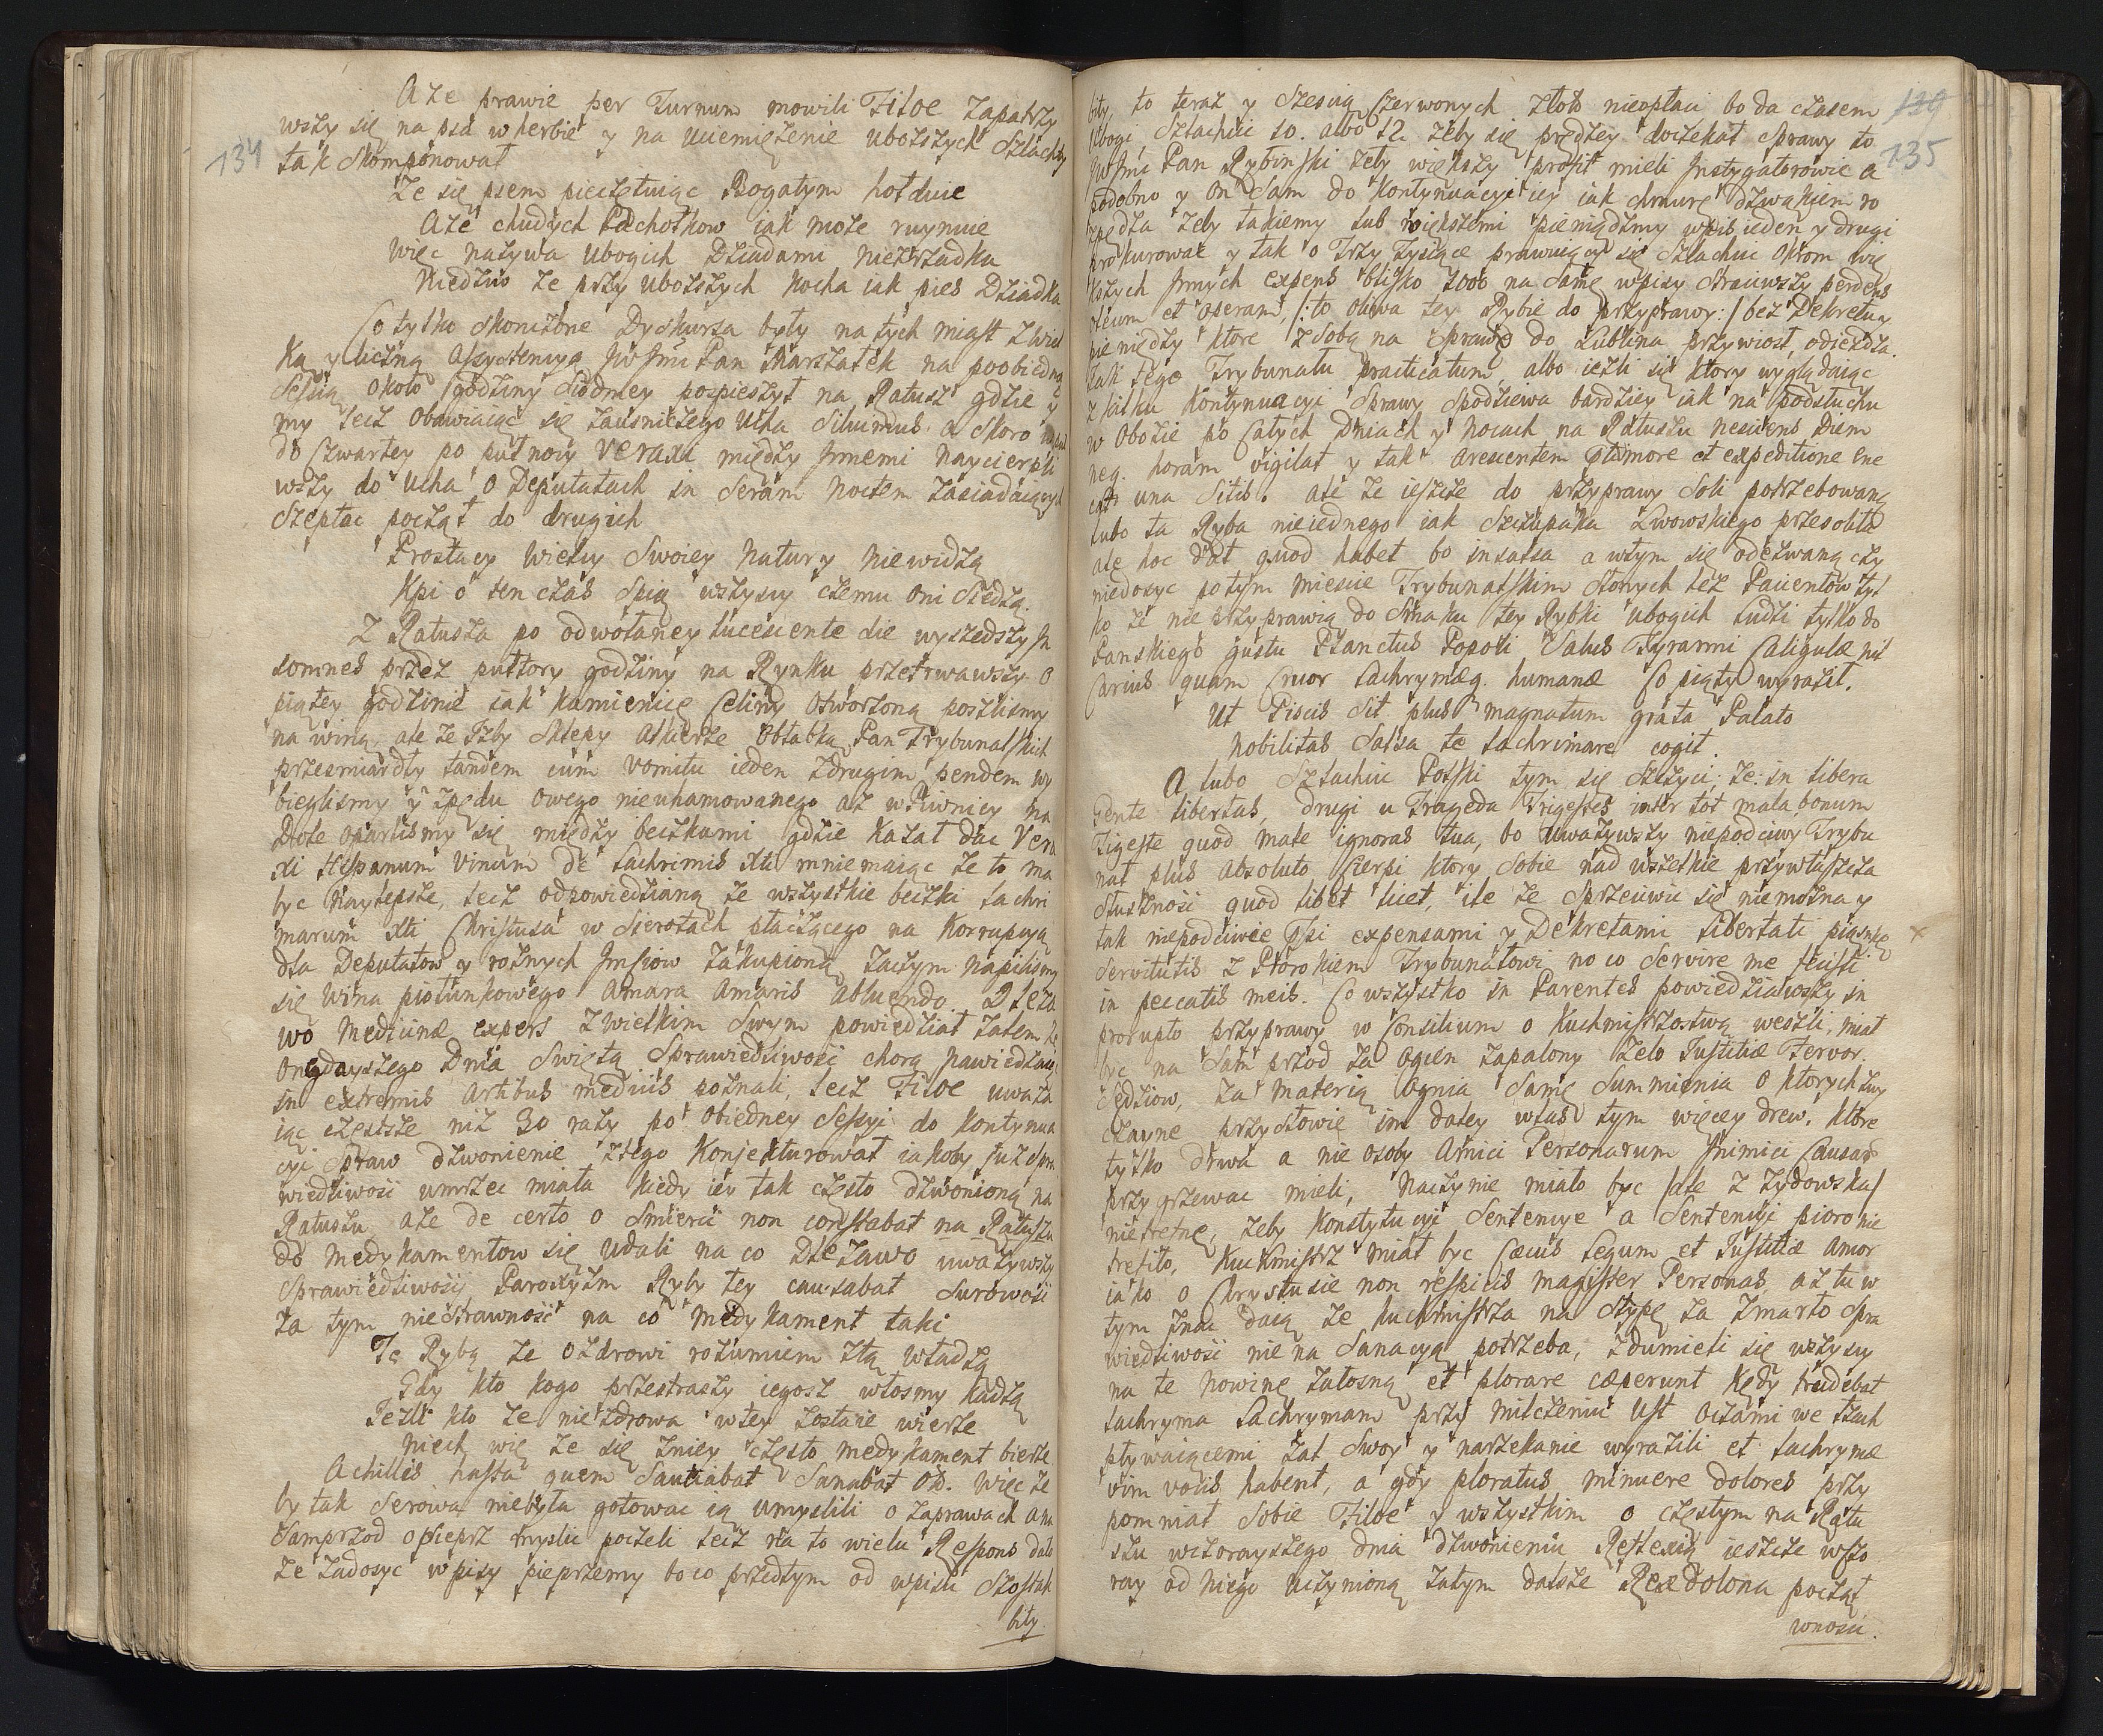 134
Aże prawie per Turnum mowili Filoe zapatrzy
wszy się na psa w herbie y na uciemiężenie uboższych Szlachty
tak skomponował
Że się psem pieczętuiąc Bogatym hołduie
Aże chudych Pachołkow iak może ruynuie
Więc nazywa ubogich Dziadami nieżrzadka
Niedziw że przy uboższych kocha iak pies Dziadka
Co tylko skonczone Dyskursa były na tych miast z wiel
ką y liczną Assystencyą JWJmć Pan Marszałek na poobiednią
Sessią około godziny siodmey pospieszył na Ratusz gdzie y
my lecz obawiaiąc się zausniczego Ucha silvimus a skoro
do Czwartey po pułnocy Veraxa między Jnnemi naycierpli
wszy do Ucha o Deputatach in seram noctem zasiadaiących
szeptac począł do drugich
Prostacy wielcy swoiey natury nie widzą
Kpi o ten czas spią wszyscy czemu oni siedzą.
Z Ratusza po odwołaney lucescente die wyszedszy Jn
somnes przez pułtory godziny na Rynku przetrwawszy o
piątey godzinie iak kamienicę Celiny otworzoną poszlismy
na wino, ale że Jzby sklepy alkierze obłabką Pan Trybunalskich
przesmiardły tandem cum vomitu ieden zdrugim pendem wy
bieglismy y zpędu owego nieuhamowanego aż w Piwnicy na
Dole oparlismy się między beczkami gdzie kazał dac Vera
xi Hispanum Vinum de Lachrimis Xti mniemaiąc że to ma
byc naylepsze, lecz odpowiedziano że wszystkie beczki Lachri
marum Xti Chrystusa w Sierotach płaczącego na Korrupcyą
dla Deputatow y rożnych Jmsiow zakupiono, zaczym napilismy
się Wina piołunkowego Amara Amaris abluendo. Dleza
wo Medicinæ expers z wielkim swym powiedział żalem że
onegdayszego Dnia Swiętą Sprawiedliwosc chorą nawiedzaiąc
in extremis Artibus mediis poznali, lecz Filoe uważa
iąc częstsze niż 30 razy po obiedney Sessyi do kontynua
cyi Spraw dzwonienie z tego Konjekturował iakoby już Spra
wiedliwosc umrzec miała kiedy iey tak często dzwoniono na
Ratuszu ale de certo o smierci non constabat na Ratuszu
do Medykamentow się udali na co Dlezawo uważywszy
Sprawiedliwosci Paroxyzm Ryby tey causabat surowosc
za tym niestrawnosc na co Medykament taki
Tę Rybą że ozdrowi rozumiem złą władzą
Gdy kto kogo przestraszy iegosz włosmy kadzą
Jezli kto że niezdrowa w tey zostaie wierze
Niech wie że się zniey często medykament bierze
Achilles hasta quem Sautiabat Sanabat ob. Więc że
by tak serowa niebyła gotowac ią umyslili o zaprawach a na
samprzod o Pieprz myslic poczeli lecz na to wielu Respons dało
że zadosyc wpisy pieprzemy bo co przedtym od wpisu szostak
bity
139
135
bity, to teraz y sześcią Czerwonych Złoto nieopłaci bo da czasem
Ubogi Szlachcic 10. albo 12. żeby się prędzey doczekał sprawy to
JWJmć Pan Rybinski żeby większy profit mieli Jnstygatorowie a
podobno y On sam do Kontynuacyi iey iak chmurę dzwakiem ro
zpędza żeby takiemy lub większemi pieniądzmy wpis ieden y drugi
prokurował y tak o Trzy Tysiące prawuiący się Szlachcic okrom wię
kszych Jnnych expens blisko 1000 na same wpisy straciwszy perdens
oleum et operam, /: to oliwa tey Rybie do przyprawy :/ bez Dekretu y
pieniędzy ktore z sobą na Sprawę do Lublina przywiozł, odiezdza.
Jak tego Trybunału practicatum albo iezli się ktory wyglądaiąc
z zatku Kontynuacyi Sprawy spodziewa bardziey iak na podsłuchu
w Obozie po całych Dniach y nocach na Ratuszu nesciens Diem
neq. horam vigilat y tak arescentem clamore et expeditione ene
cat una Sitis. ale że ieszcze do przyprawy Soli potrzebowano
lubo ta Ryba nieiednego iak Szczupaka Lwowskiego przesoliła
ale hoc dat quod habet bo insulsa a wtym się odezwano czy
niedosyc po tym miescie Trybunalskim słonych łez Pacientow tyl
ko że nie przyprawią do smaku tey Rybki ubogich ludzi tylko do
Panskiego gustu Planctus Populi Salus Tyranni Caligulæ nil
Carius quam Cruor Lachrymæq. humanæ Co piąty wyraził.
Ut Piscis sit plus magnatum grata Palato
Nobilitas Salsa te lachrimare cogit.
A lubo Szlachcic Polski tym się szczyci; że: in libera
Gente libertas, drugi u Trageda Trigesies inter tot mala bonum
Tigeste quod male ignoras tua, bo uważywszy niepodciwy Trybu
nał plus absoluto Cierpi ktory sobie nad wszelkie przywłaszcza
słusznosc quod libet licet, ile że sprzeciwic się niemożna y
tak niepodciwie Jpsi expensami y Dekretami Libertati piosnkę
Servitutis z Prorokiem Trybunałowi no co Servire me fecisti
in peccatis meis. Co wszystko in Parentes powiedziawszy in
prorupto przyprawy w Consilium o kuchmistrzostwo weszli, miał
byc na sam przod za ogien zapalony Zelo Justitiæ Fervor.
Sędziow, za materią ognia same summienia o ktorych zwy
czayne przysłowie im daley w las tym więcey drew. ktore
tylko drwa a nie osoby Amici Personarum Jnimici Causas
przygrzewac mieli, Naczynie miało byc /ale z żydowska/
nietrefne, żeby Konstytucyi Sentencye a Sentencyi pioro nie
trefiło, Kuchmistrz miał byc Cæcus Legum et Justitiæ Amor
iako o Chrystusie non respicis magister Personas, aż tu w
tym znac daią że kuchmistrza na stypę za zmarło Spra
wiedliwosc nie na Sanacyą potrzeba, zdumieli się wszyscy
na te nowinę żałosną et plorare cæperunt kędy trudebat
lachryma Lachrymam przy milczeniu Ust oczami we łzach
pływaiącemi żal swoy y narzekanie wyrazili et lachrymæ
vim vocis habent, a gdy ploratus minuere dolores przy
pomniał sobie Filoe y wszystkim o częstym na Ratu
szu wczorayszego dnia dzwonieniu Reflexią ieszcze wczo
ray od niego uczynioną zatym dalsze Rexdolona począł
wnosic.